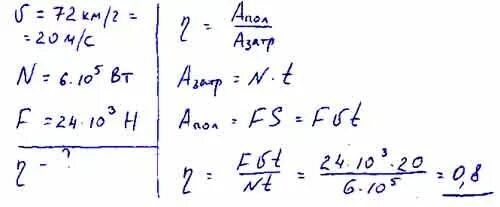 υ = 72 км/г =
= 20 м/с
N = 6·10⁵ Вт
F = 24·10³ Н
η - ?
η = Aпол / Aзатр
Aзатр = N·t
Aпол = FS = Fυt
η = Fυt / Nt = 24·10³·20 / 6·10⁵ = 0,8